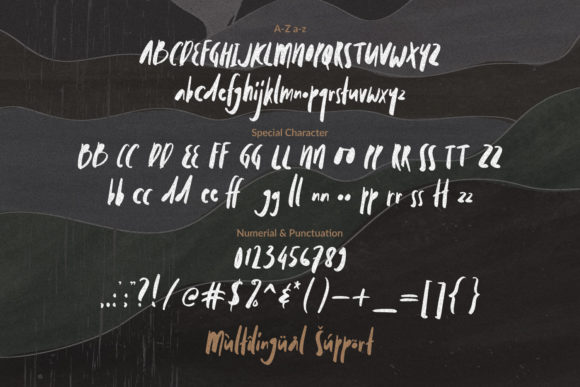 A-Z a-z
ABCDEFGHIJKLMNOPQRSTUVWXYZ
abcdefghijklmnopqrstuvwxyz
Special Character
BB CC DD EE FF GG LL nn oo pp RR SS TT ZZ
bb cc dd ee ff gg ll nn oo pp rr ss tt zz
Numerial & Punctuation
0123456789
.,:;'"?!/@#$%^&*()-+_=[]{}
Mùltîlingüãl Šúppört